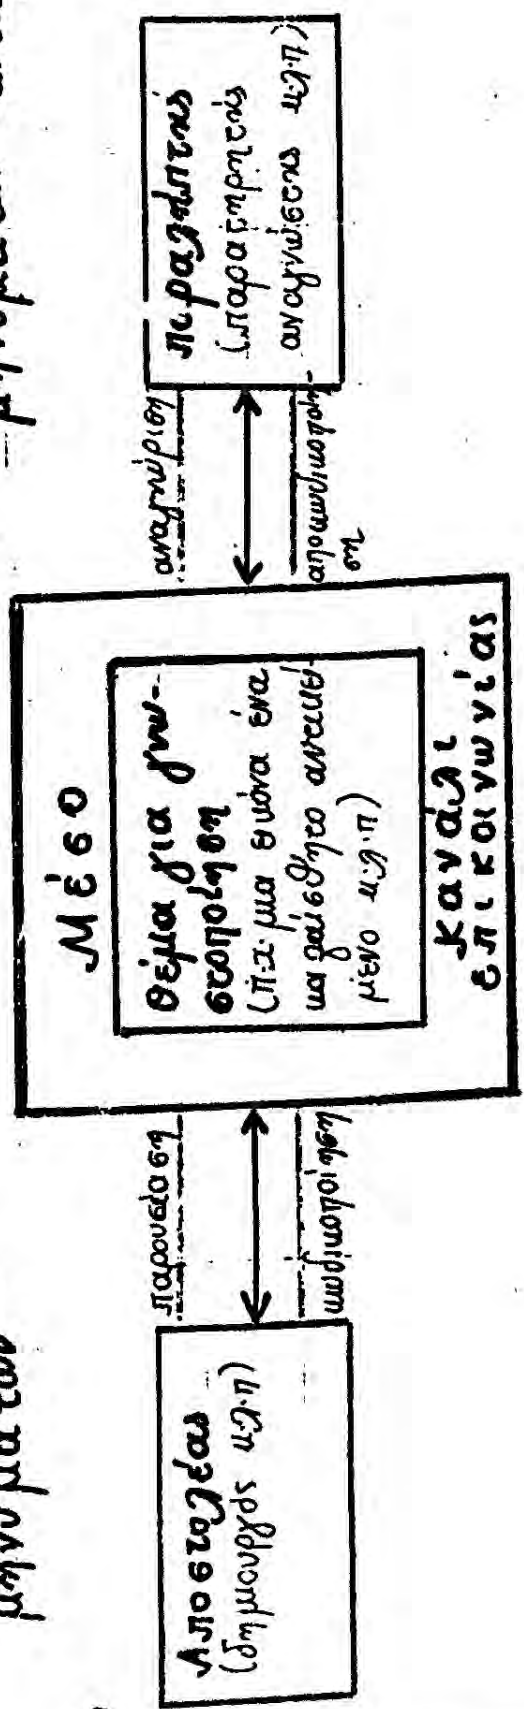 μηνυμάτων
Αποστολέας
(δημιουργός κ.λ.π)
παρουσίαση
κωδικοποίηση
Μέσο
Θέμα για γνω-
στοποίηση
(π.χ. μια εικόνα ένα
καλαίσθητο αντικεί-
μενο κ.λ.π)
κανάλι
επικοινωνίας
αναγνώριση
αποκωδικοποίη-
ση
παραλήπτης
(παρατηρητής
αναγνώστης κ.λ.π)